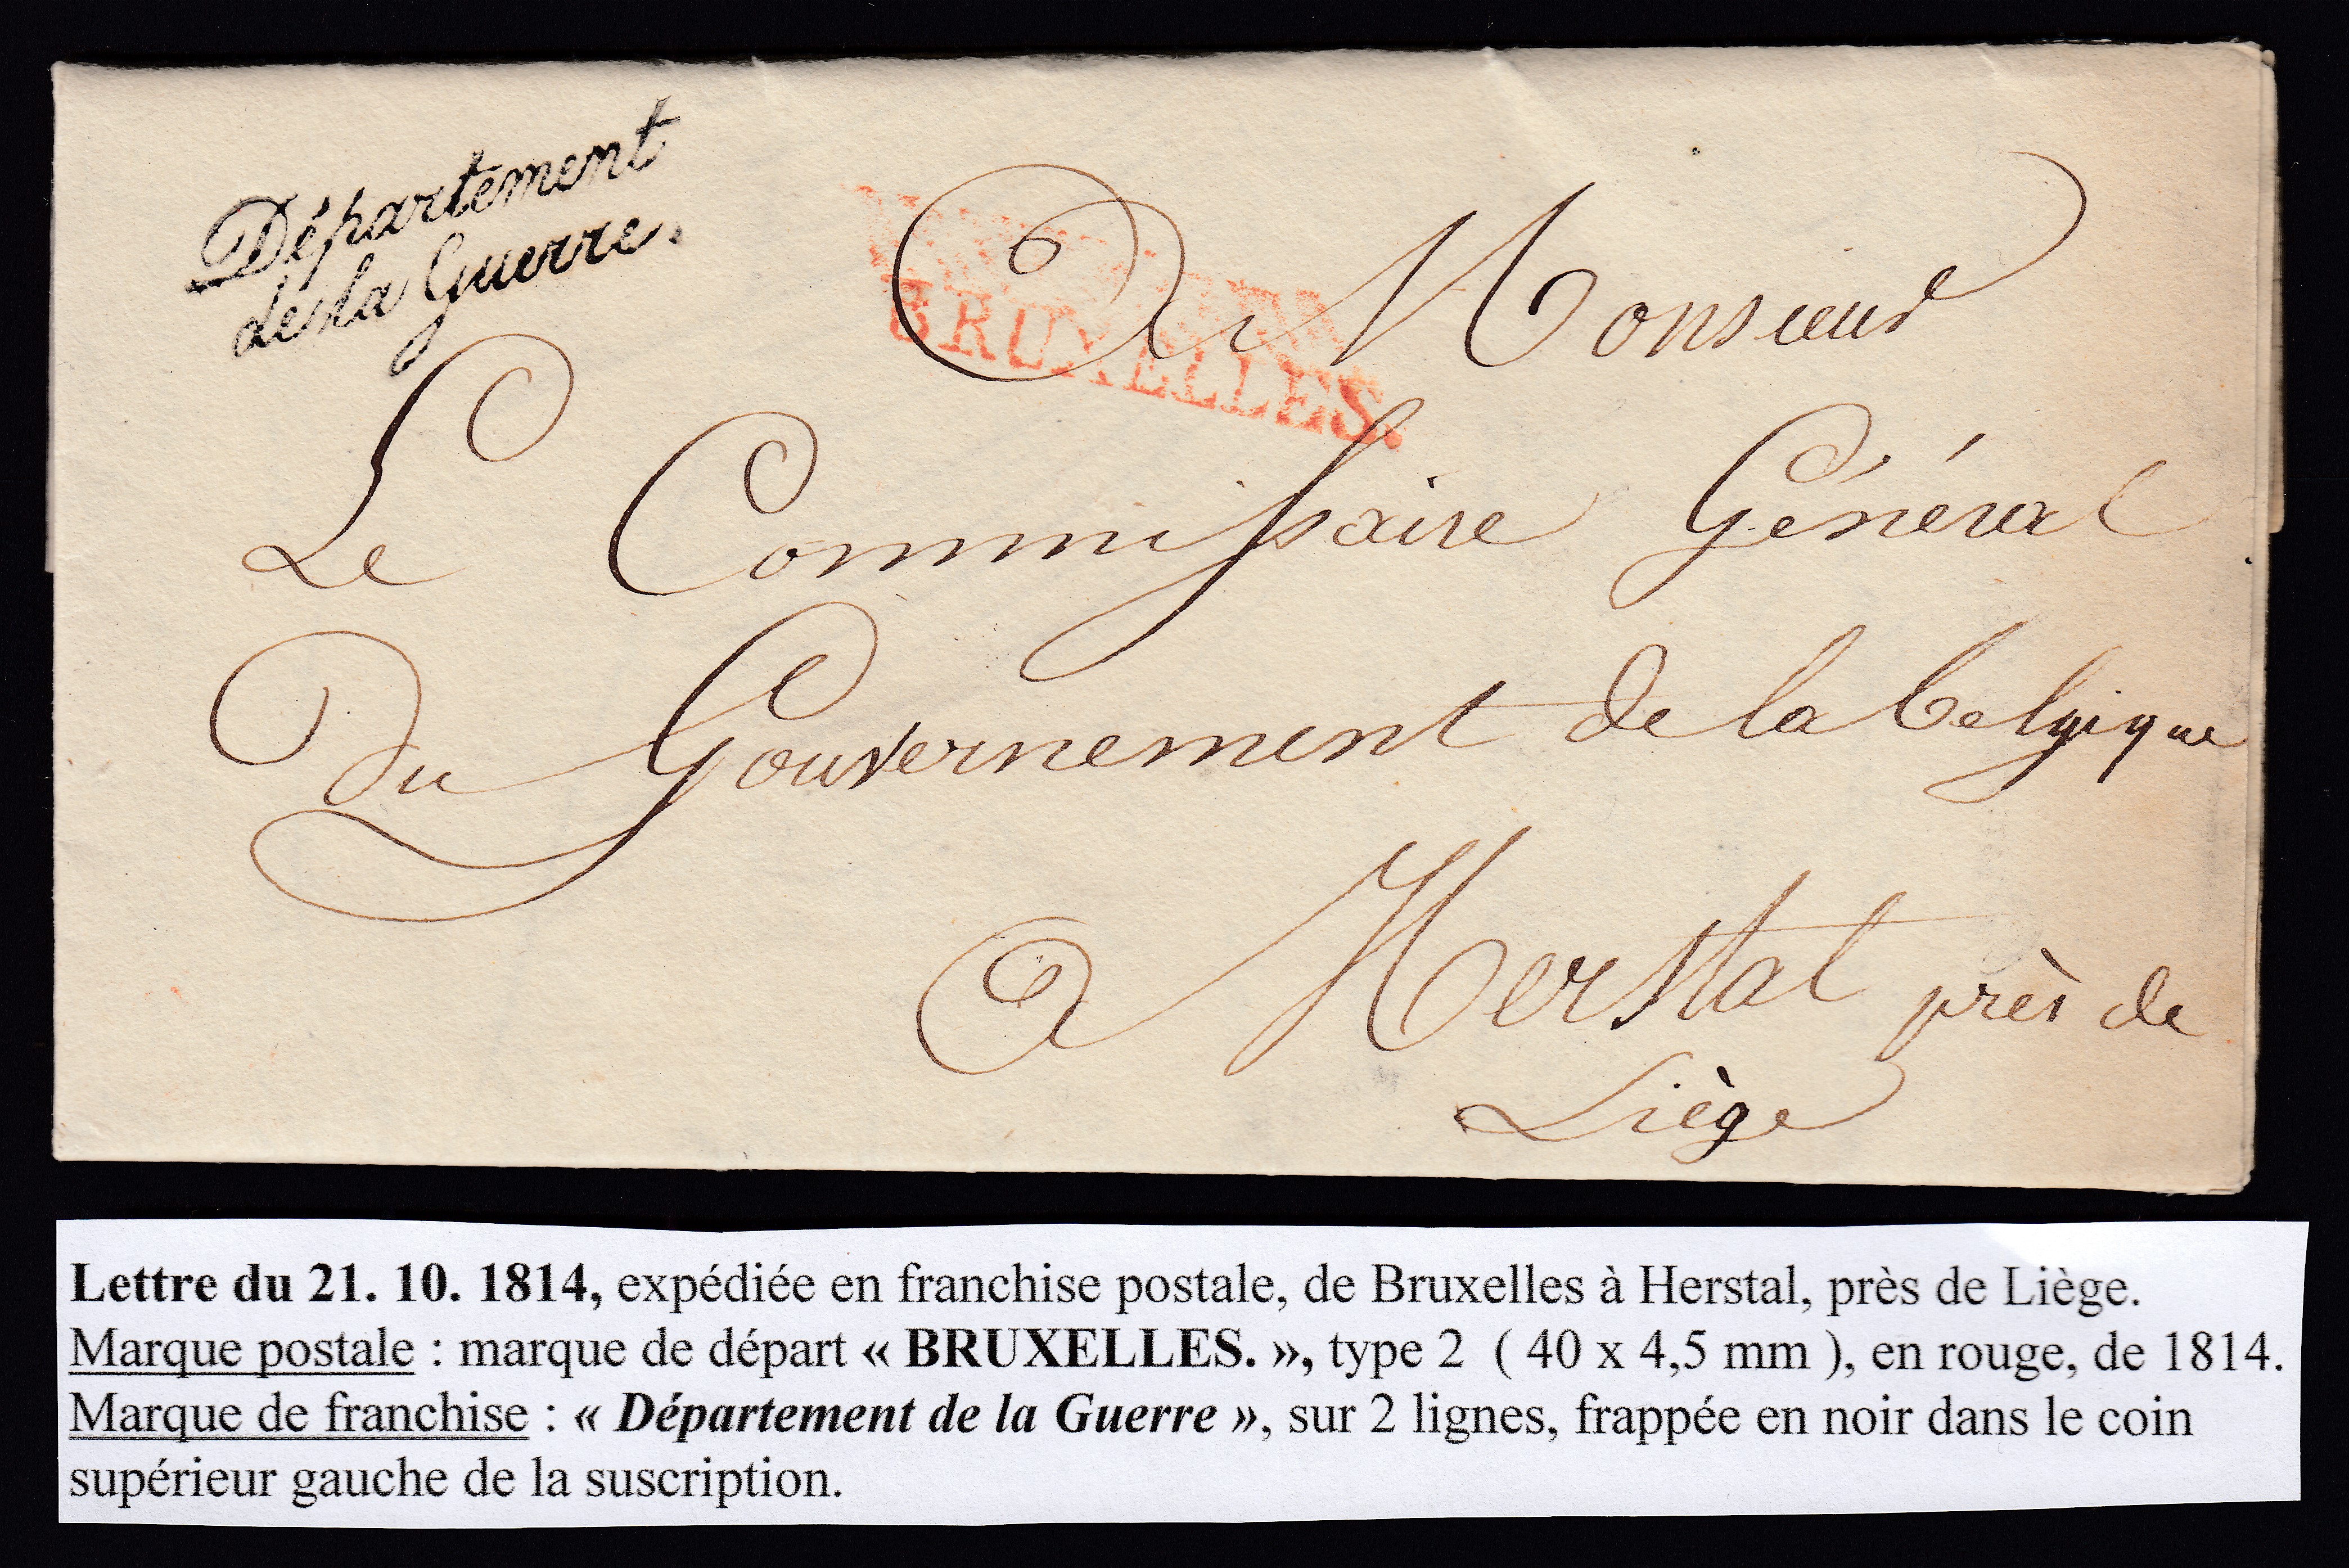 Département
de la Guerre.
BRUXELLES.
A Monsieur
Le Commissaire Général
Du Gouvernement de la belgique
a Herstal près de
Liège
Lettre du 21. 10. 1814, expédiée en franchise postale, de Bruxelles à Herstal, près de Liège.
Marque postale : marque de départ « BRUXELLES. », type 2 ( 40 x 4,5 mm ), en rouge, de 1814.
Marque de franchise : « Département de la Guerre », sur 2 lignes, frappée en noir dans le coin
supérieur gauche de la suscription.